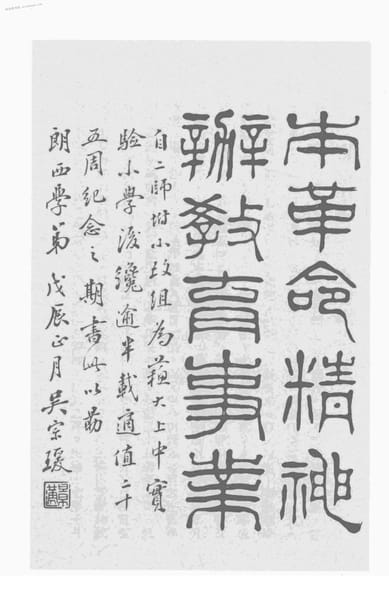 本革命精神
辦教育事業
自二師附小改組為蘇大上中實
驗小學後纔逾半載適值二十
五周紀念之期書此以勗
朗西學弟 戊辰正月吳宗瑗